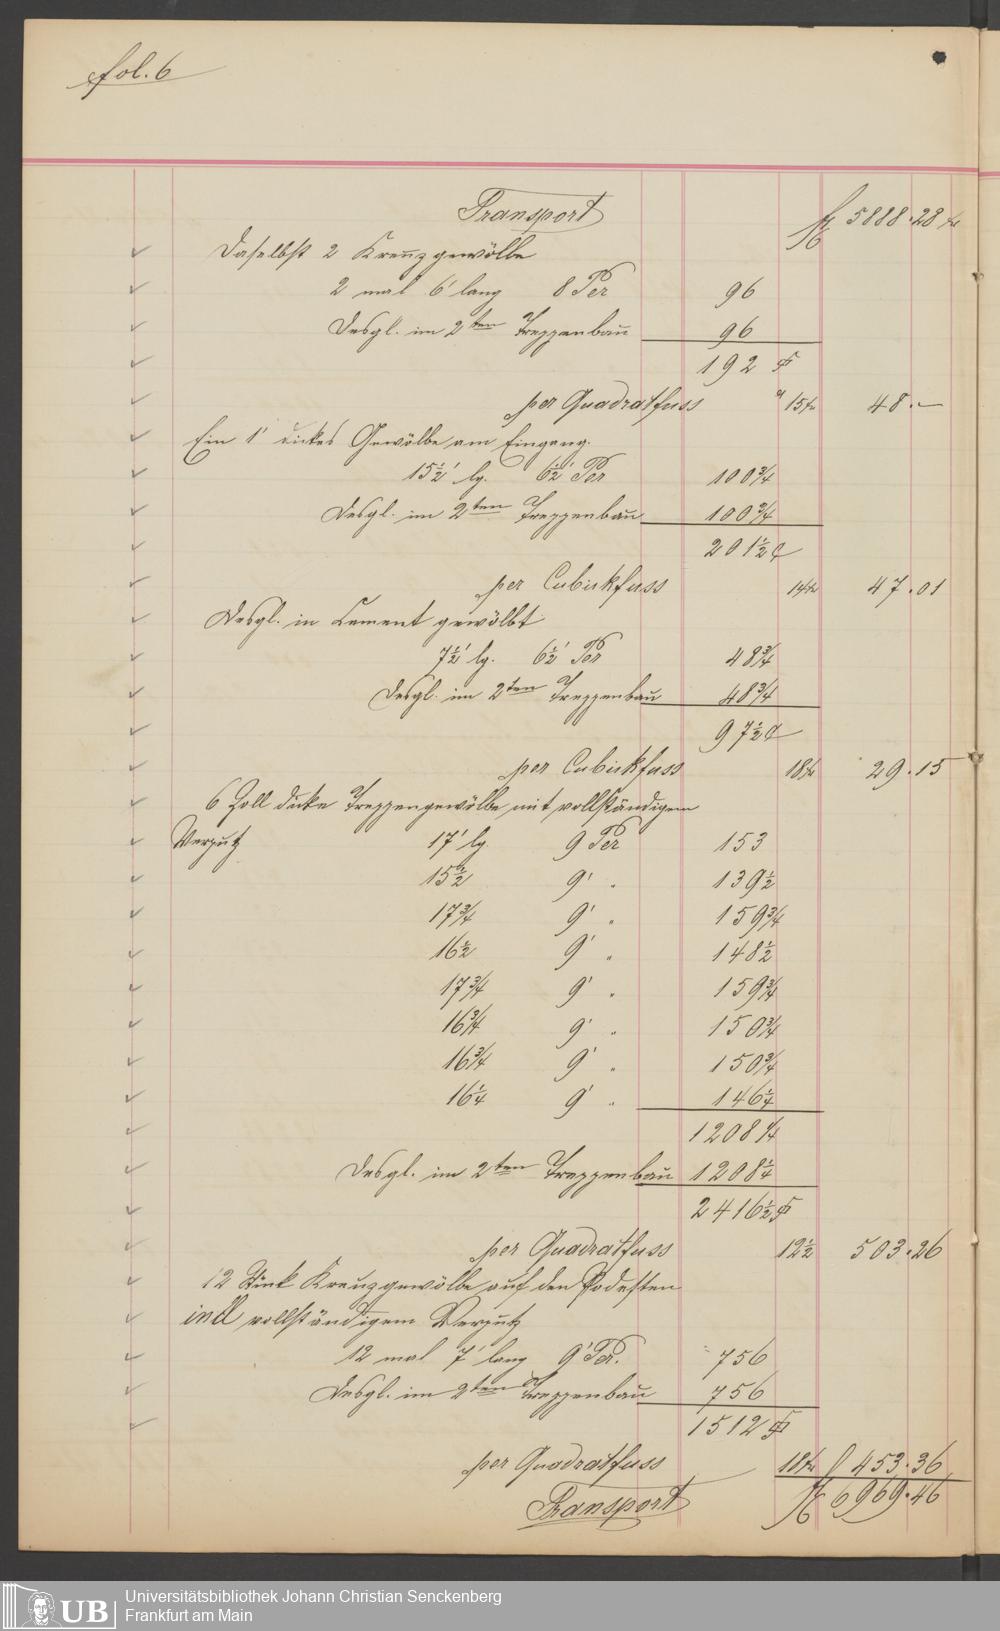 fol. 6
Transport fl 5888.28 kr
Daselbst 2 Kreuzgewölbe
2 mal 6' lang 8 Per 96
Desgl. im 2ten Treppenbau 96
192
per Quadratfuss a 15 kr 48.—
Ein 1' dickes Gewölbe am Eingang.
15½' lg. 6½' Per 100¾
Desgl. im 2ten Treppenbau 100¾
201½
per Cubickfuss 14 kr 47.01
Desgl. in Cement gewölbt
7½' lg. 6½' Per 48¾
Desgl. im 2ten Treppenbau 48¾
97½
per Cubickfuss 18 kr 29.15
6 Zoll dicke Treppengewölbe mit vollständigem
Verputz 17' lg 9 Per 153
15½ 9' " 139½
17¾ 9' " 159¾
16½ 9' " 148½
17¾ 9' " 159¾
16¾ 9' " 150¾
16¾ 9' " 150¾
16¼ 9' " 146¼
1208¼
Desgl. im 2ten Treppenbau 1208¼
2416½
per Quadratfuss 12½ 503.26
12 Stück Kreuzgewölbe auf den Podesten
incl vollständigem Verputz
12 mal 7' lang 9' Per. 756
Desgl. im 2ten Treppenbau 756
1512
per Quadratfuss 18 kr 453.36
Transport fl 6969.46
UB
Universitätsbibliothek Johann Christian Senckenberg
Frankfurt am Main